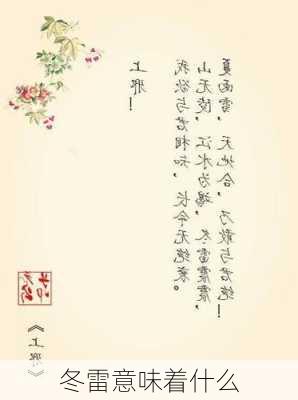 上邪!
我欲与君相知,长命无绝衰。
山无陵,江水为竭,冬雷震震,
夏雨雪,天地合,乃敢与君绝!
《上邪》
冬雷意味着什么